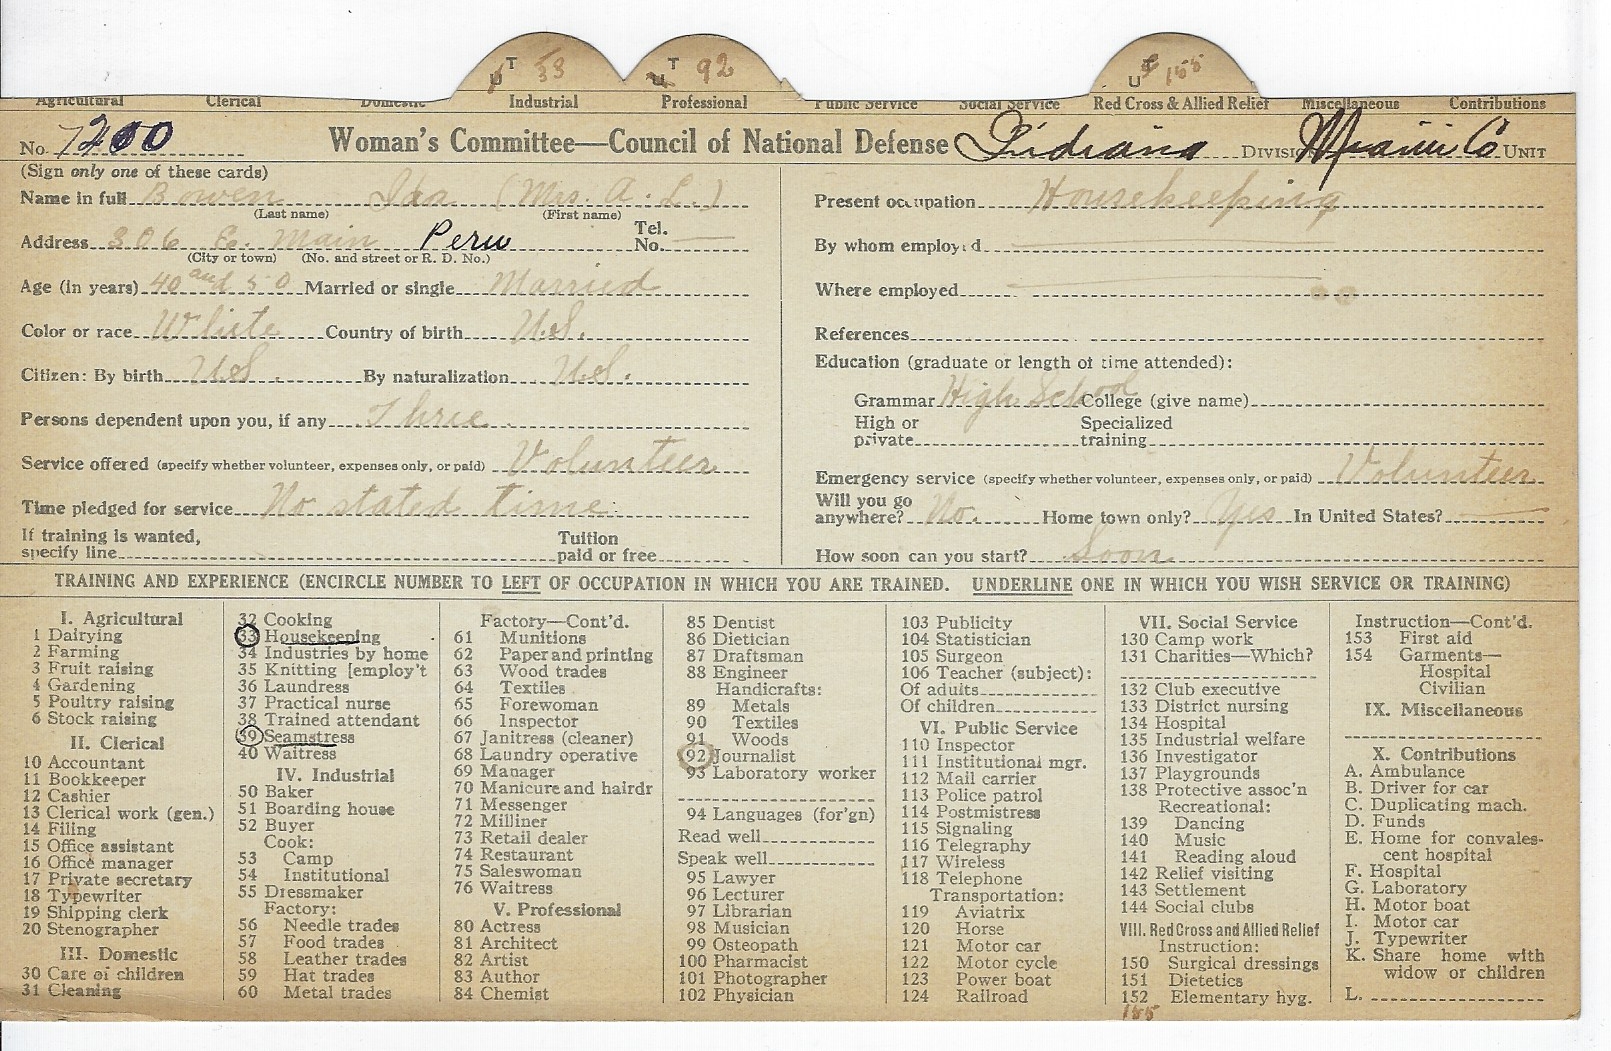 T 33
T 92
U 155
Agricultural Clerical Domestic Industrial Professional Public Service Social Service Red Cross & Allied Relief Miscellaneous Contributions
No. 7200 Woman's Committee—Council of National Defense Indiana Division Miami Co Unit
(Sign only one of these cards)
Name in full Bowen Ida (Mrs. A. L.)
(Last name) (First name)
Address 306 E. Main Peru Tel. No.
(City or town) (No. and street or R. D. No.)
Age (in years) 40 and 50 Married or single Married
Color or race White Country of birth U.S.
Citizen: By birth U.S. By naturalization U.S.
Persons dependent upon you, if any Three
Service offered (specify whether volunteer, expenses only, or paid) Volunteer
Time pledged for service No stated time
If training is wanted, specify line Tuition paid or free
Present occupation Housekeeping
By whom employed
Where employed
References
Education (graduate or length of time attended):
Grammar High School College (give name)
High or private Specialized training
Emergency service (specify whether volunteer, expenses only, or paid) Volunteer
Will you go anywhere? No. Home town only? Yes In United States?
How soon can you start? Soon
TRAINING AND EXPERIENCE (ENCIRCLE NUMBER TO LEFT OF OCCUPATION IN WHICH YOU ARE TRAINED. UNDERLINE ONE IN WHICH YOU WISH SERVICE OR TRAINING)
I. Agricultural
1 Dairying
2 Farming
3 Fruit raising
4 Gardening
5 Poultry raising
6 Stock raising
II. Clerical
10 Accountant
11 Bookkeeper
12 Cashier
13 Clerical work (gen.)
14 Filing
15 Office assistant
16 Office manager
17 Private secretary
18 Typewriter
19 Shipping clerk
20 Stenographer
III. Domestic
30 Care of children
31 Cleaning
32 Cooking
33 Housekeeping
34 Industries by home
35 Knitting [employ't
36 Laundress
37 Practical nurse
38 Trained attendant
39 Seamstress
40 Waitress
IV. Industrial
50 Baker
51 Boarding house
52 Buyer
Cook:
53 Camp
54 Institutional
55 Dressmaker
Factory:
56 Needle trades
57 Food trades
58 Leather trades
59 Hat trades
60 Metal trades
Factory—Cont'd.
61 Munitions
62 Paper and printing
63 Wood trades
64 Textiles
65 Forewoman
66 Inspector
67 Janitress (cleaner)
68 Laundry operative
69 Manager
70 Manicure and hairdr
71 Messenger
72 Milliner
73 Retail dealer
74 Restaurant
75 Saleswoman
76 Waitress
V. Professional
80 Actress
81 Architect
82 Artist
83 Author
84 Chemist
85 Dentist
86 Dietician
87 Draftsman
88 Engineer
Handicrafts:
89 Metals
90 Textiles
91 Woods
92 Journalist
93 Laboratory worker
94 Languages (for'gn)
Read well
Speak well
95 Lawyer
96 Lecturer
97 Librarian
98 Musician
99 Osteopath
100 Pharmacist
101 Photographer
102 Physician
103 Publicity
104 Statistician
105 Surgeon
106 Teacher (subject):
Of adults
Of children
VI. Public Service
110 Inspector
111 Institutional mgr.
112 Mail carrier
113 Police patrol
114 Postmistress
115 Signaling
116 Telegraphy
117 Wireless
118 Telephone
Transportation:
119 Aviatrix
120 Horse
121 Motor car
122 Motor cycle
123 Power boat
124 Railroad
VII. Social Service
130 Camp work
131 Charities—Which?
132 Club executive
133 District nursing
134 Hospital
135 Industrial welfare
136 Investigator
137 Playgrounds
138 Protective assoc'n
Recreational:
139 Dancing
140 Music
141 Reading aloud
142 Relief visiting
143 Settlement
144 Social clubs
VIII. Red Cross and Allied Relief
Instruction:
150 Surgical dressings
151 Dietetics
152 Elementary hyg.
155
Instruction—Cont'd.
153 First aid
154 Garments—
Hospital
Civilian
IX. Miscellaneous
X. Contributions
A. Ambulance
B. Driver for car
C. Duplicating mach.
D. Funds
E. Home for convales-
cent hospital
F. Hospital
G. Laboratory
H. Motor boat
I. Motor car
J. Typewriter
K. Share home with
widow or children
L.